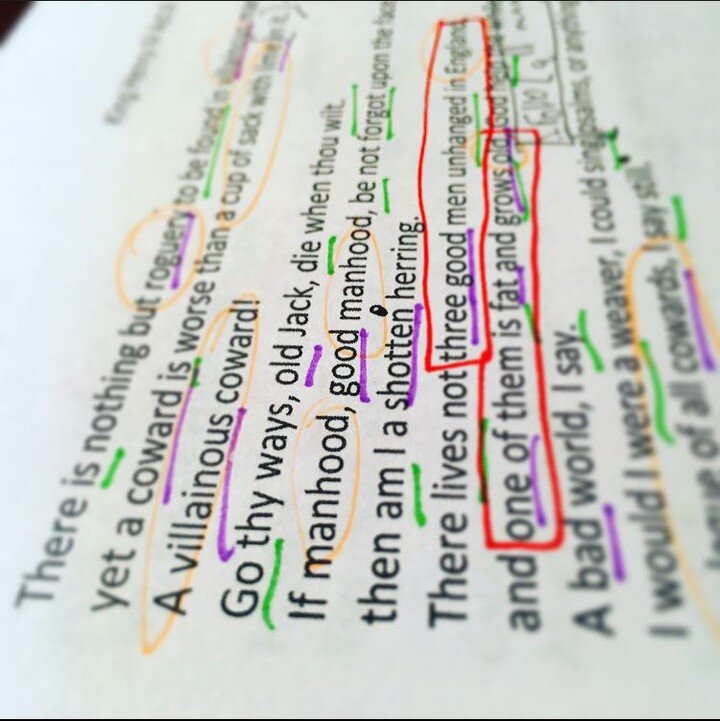 King Henry
There is nothing but roguery to be found in villainous
yet a coward is worse than a cup of sack with lime in
A villainous coward!
Go thy ways, old Jack, die when thou wilt.
If manhood, good manhood, be not forgot upon the face
then am I a shotten herring.
There lives not three good men unhanged in England
and one of them is fat and grows old, God help the
A bad world, I say.
I would I were a weaver, I could sing psalms, or anything
I say still.
of all cowards,